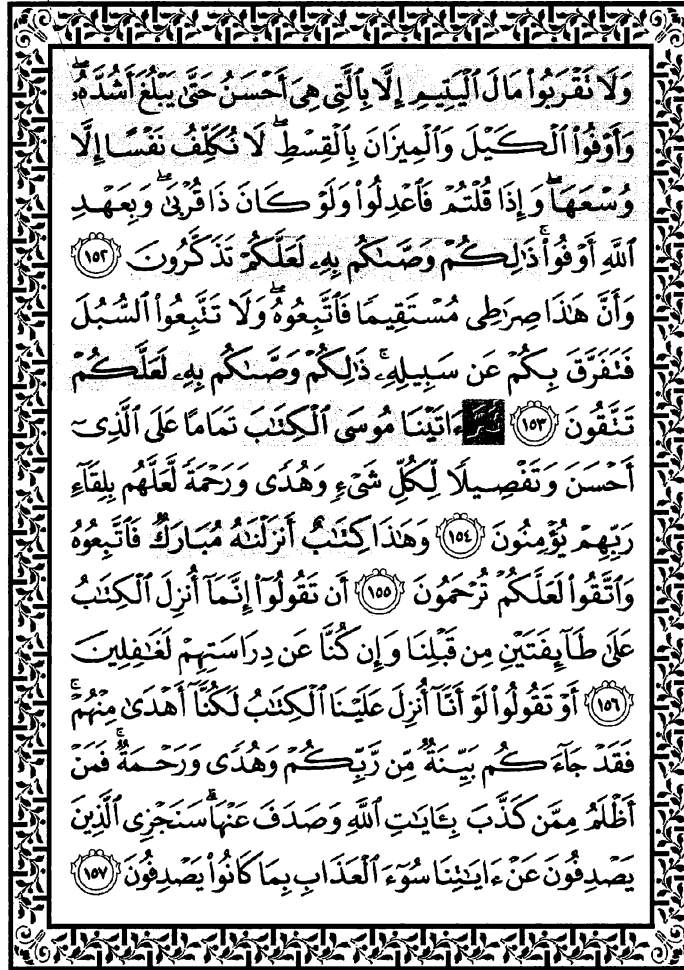 وَلَا تَقْرَبُوا۟ مَالَ ٱلْيَتِيمِ إِلَّا بِٱلَّتِى هِىَ أَحْسَنُ حَتَّىٰ يَبْلُغَ أَشُدَّهُۥ ۖ
وَأَوْفُوا۟ ٱلْكَيْلَ وَٱلْمِيزَانَ بِٱلْقِسْطِ ۖ لَا نُكَلِّفُ نَفْسًا إِلَّا
وُسْعَهَا ۖ وَإِذَا قُلْتُمْ فَٱعْدِلُوا۟ وَلَوْ كَانَ ذَا قُرْبَىٰ ۖ وَبِعَهْدِ
ٱللَّهِ أَوْفُوا۟ ۚ ذَٰلِكُمْ وَصَّىٰكُم بِهِۦ لَعَلَّكُمْ تَذَكَّرُونَ ١٥٢
وَأَنَّ هَٰذَا صِرَٰطِى مُسْتَقِيمًا فَٱتَّبِعُوهُ ۖ وَلَا تَتَّبِعُوا۟ ٱلسُّبُلَ
فَتَفَرَّقَ بِكُمْ عَن سَبِيلِهِۦ ۚ ذَٰلِكُمْ وَصَّىٰكُم بِهِۦ لَعَلَّكُمْ
تَتَّقُونَ ١٥٣ ءَاتَيْنَا مُوسَى ٱلْكِتَٰبَ تَمَامًا عَلَى ٱلَّذِىٓ
أَحْسَنَ وَتَفْصِيلًا لِّكُلِّ شَىْءٍ وَهُدًى وَرَحْمَةً لَّعَلَّهُم بِلِقَآءِ
رَبِّهِمْ يُؤْمِنُونَ ١٥٤ وَهَٰذَا كِتَٰبٌ أَنزَلْنَٰهُ مُبَارَكٌ فَٱتَّبِعُوهُ
وَٱتَّقُوا۟ لَعَلَّكُمْ تُرْحَمُونَ ١٥٥ أَن تَقُولُوٓا۟ إِنَّمَآ أُنزِلَ ٱلْكِتَٰبُ
عَلَىٰ طَآئِفَتَيْنِ مِن قَبْلِنَا وَإِن كُنَّا عَن دِرَاسَتِهِمْ لَغَٰفِلِينَ
١٥٦ أَوْ تَقُولُوا۟ لَوْ أَنَّآ أُنزِلَ عَلَيْنَا ٱلْكِتَٰبُ لَكُنَّآ أَهْدَىٰ مِنْهُمْ ۚ
فَقَدْ جَآءَكُم بَيِّنَةٌ مِّن رَّبِّكُمْ وَهُدًى وَرَحْمَةٌ ۚ فَمَنْ
أَظْلَمُ مِمَّن كَذَّبَ بِـَٔايَٰتِ ٱللَّهِ وَصَدَفَ عَنْهَا ۗ سَنَجْزِى ٱلَّذِينَ
يَصْدِفُونَ عَنْ ءَايَٰتِنَا سُوٓءَ ٱلْعَذَابِ بِمَا كَانُوا۟ يَصْدِفُونَ ١٥٧